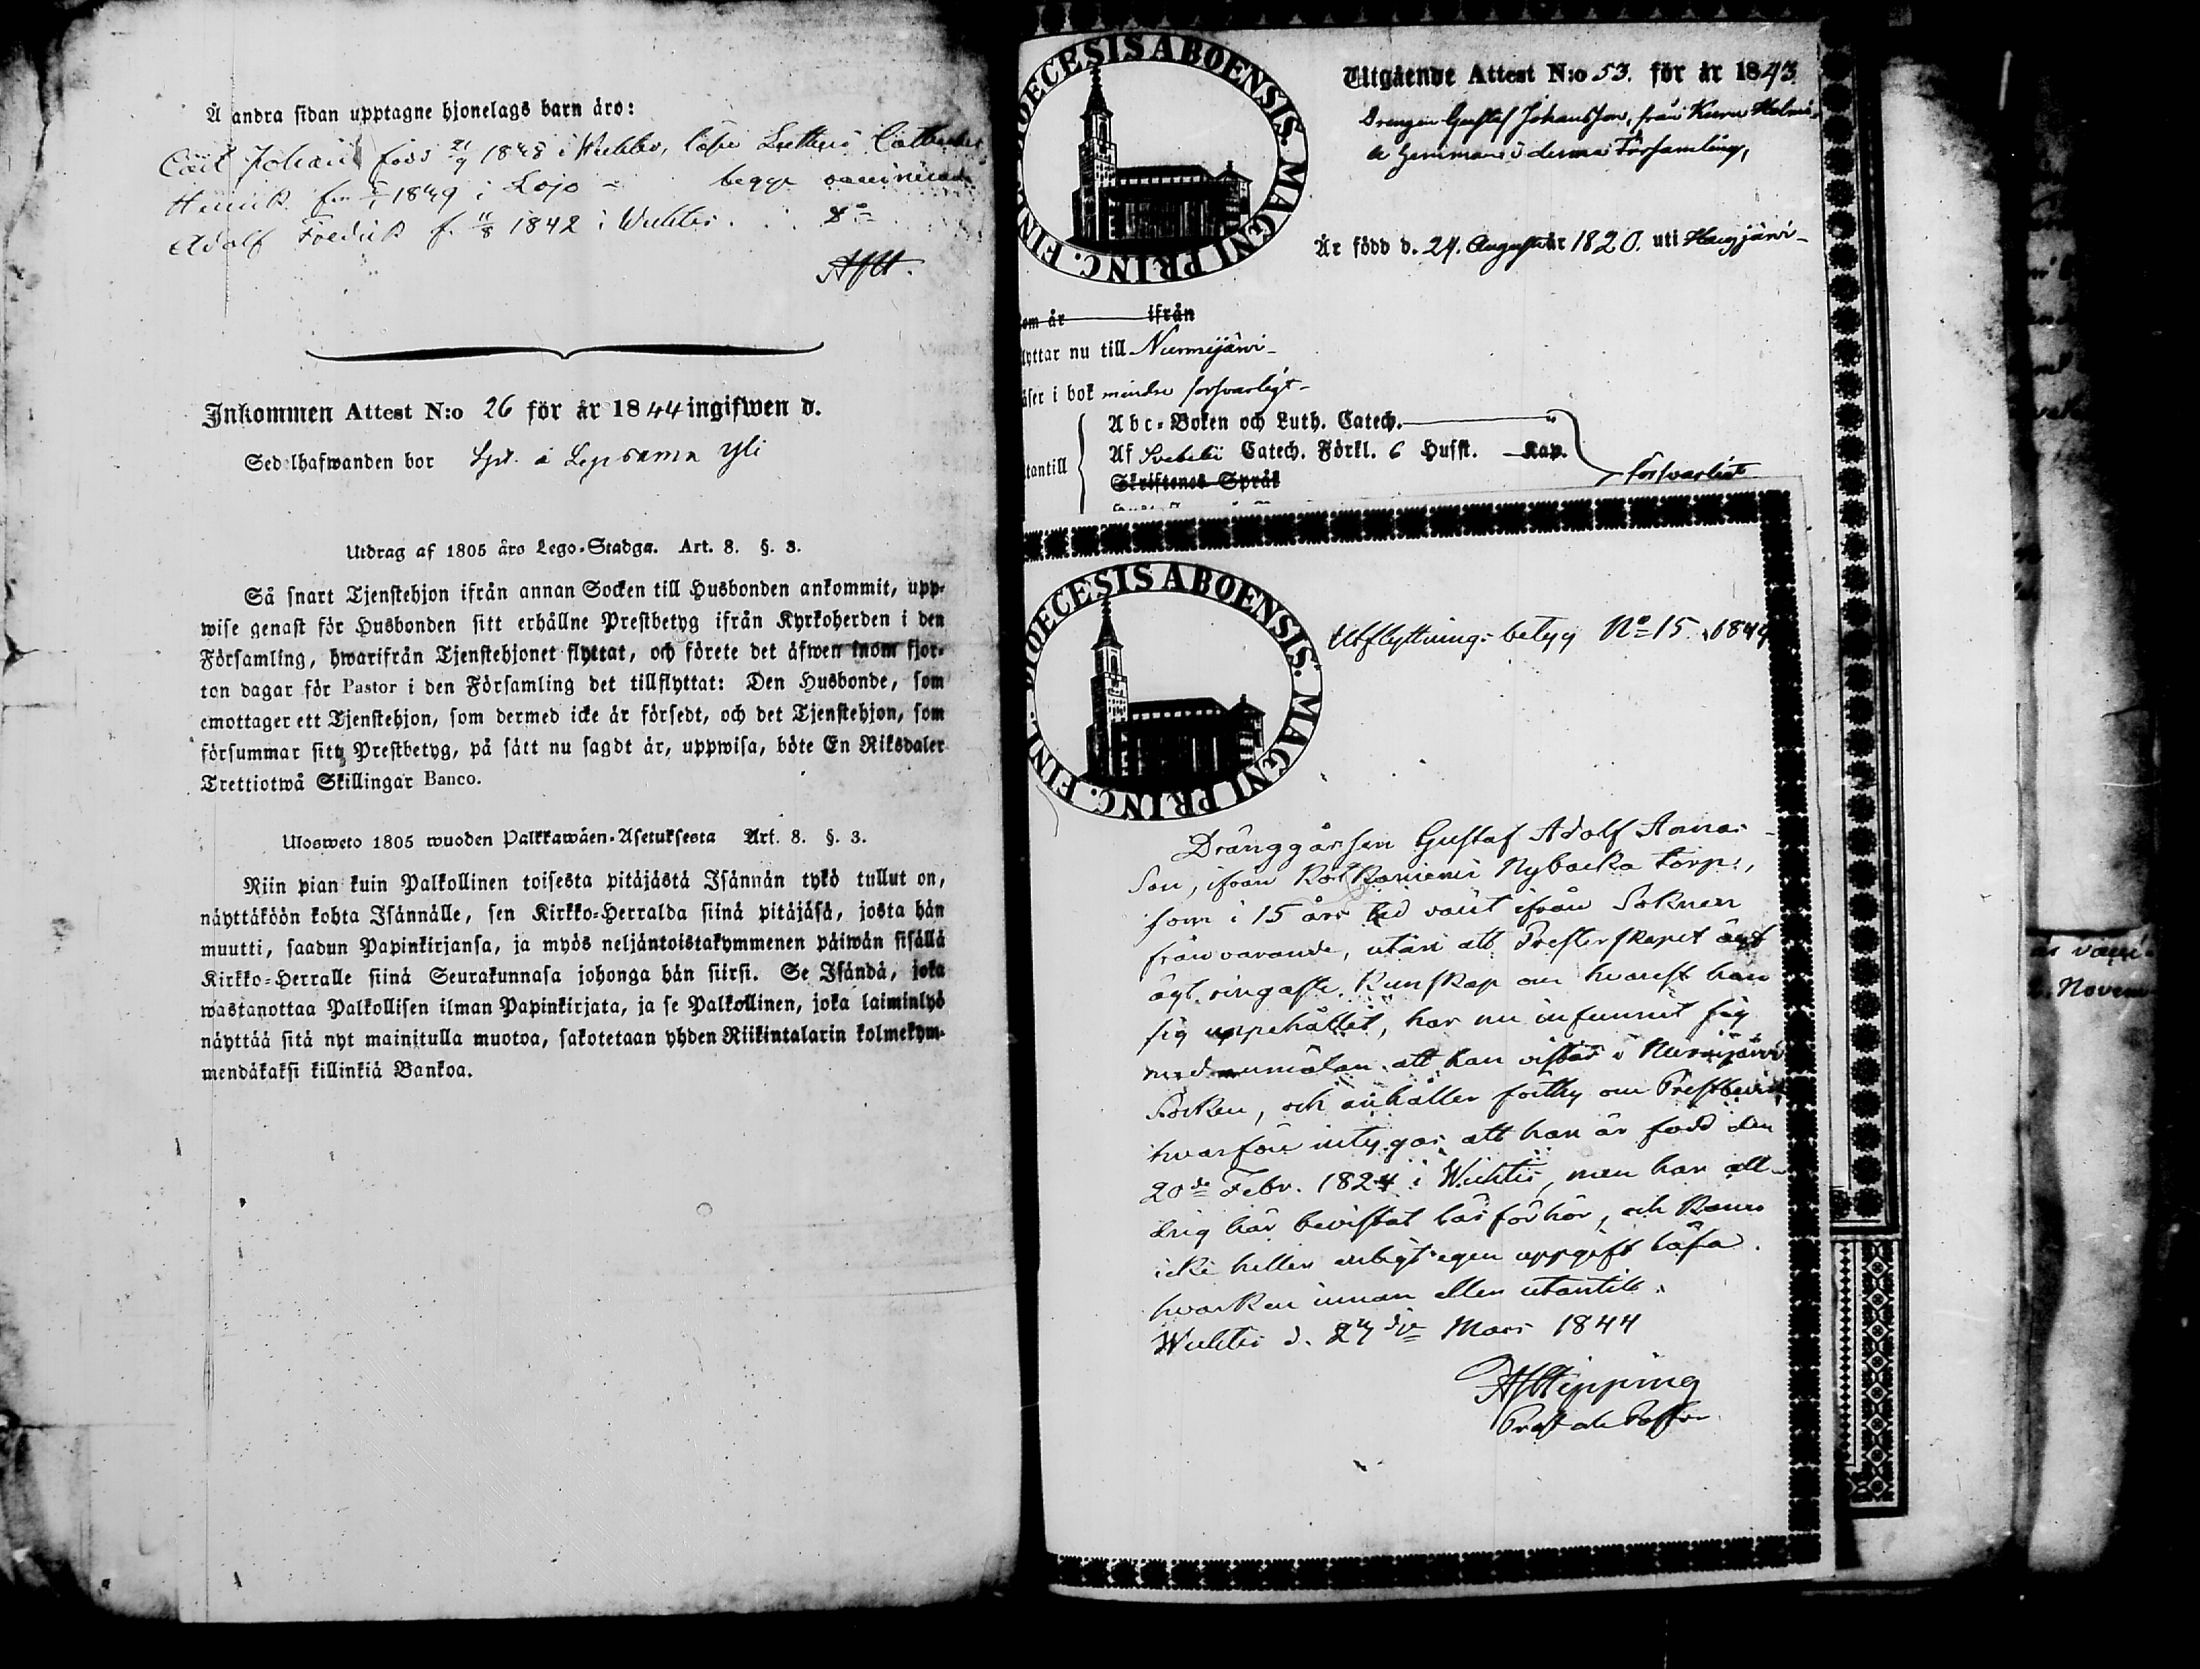 Å andra sidan upptagne hjonelags barn äro:
Carl Johan född 21/9 1848 i Wichtis, läser Lutheri Catheches
Henrik f. 1849 i Lojo begge
Adolf Fredrik f. 11/8 1842 i Wichtis. Do
Inkommen Attest N:o 26 för år 1844 ingifwen d.
Sedelhafwanden bor å Lepsama Yli
Utdrag af 1805 års Lego-Stadga. Art. 8. §. 3.
Så snart Tjenstehjon ifrån annan Socken till Husbonden ankommit, upp-
wise genast för Husbonden sitt erhållne Prestbetyg ifrån Kyrkoherden i den
Församling, hwarifrån Tjenstehjonet flyttat, och förete det äfwen inom fjor-
ton dagar för Pastor i den Församling det tillflyttat: Den Husbonde, som
emottager ett Tjenstehjon, som dermed icke är försedt, och det Tjenstehjon, som
försummar sitt Prestbetyg, på sätt nu sagdt är, uppwisa, böte En Riksdaler
Trettiotwå Skillingar Banco.
Ulosweto 1805 wuoden Palkkawäen-Asetuksesta Art. 8. §. 3.
Niin pian kuin Palkollinen toisesta pitäjästä Isännän tykö tullut on,
näyttäköön kohta Isännälle, sen Kirkko-Herralda siinä pitäjäsä, josta hän
muutti, saadun Papinkirjansa, ja myös neljäntoistakymmenen päiwän sisällä
Kirkko-Herralle siinä Seurakunnasa johonga hän siirsi. Se Isändä, joka
wastanottaa Palkollisen ilman Papinkirjata, ja se Palkollinen, joka laiminlyö
näyttää sitä nyt mainitulla muotoa, sakotetaan yhden Riikintalarin kolmekym-
mendäkaksi killinkiä Bankoa.
DIOECESIS ABOENSIS. MAGNI PRINC. FINL.
Utgående Attest N:o 53. för år 1843
Drengen Gustaf Johansson, från
hemman i denna Församling,
Är född d. 24. Augusti år 1820. uti Haujärvi
om år ifrån
lyttar nu till Nurmijärvi
äser i bok mindre försvarligt
Abc-Boken och Luth. Catech. "
tantill Af Svebelii Catech. Förkl. 6 Hufst. Kap. försvarligt
Skriftenes Språk
DIOECESIS ABOENSIS. MAGNI PRINC. FINL.
Utflyttnings betyg No 15. 1844
Dränggåssen Gustaf Adolf Annas
Son, ifrån Nybacka torp,
som i 15 års tid varit ifrån Soknen
frånvarande, utan att Presterskapet ägt
ägt ringaste kunskap om hvarest han
sig uppehållit, har nu infunnit sig
med anmälan att han vistas i Nurmijärvi
Socken, och anhåller förthy om Prestbevis
hvarföre intygas att han är född den
20de Febr. 1824 i Wichtis, men han all-
drig här bevistat läsförhör, och kann
icke heller enligt egen uppgift läsa
hvarken innan eller utantill.
Wichtis d. 27de Mars 1844
AFHipping
Prost och Pastor